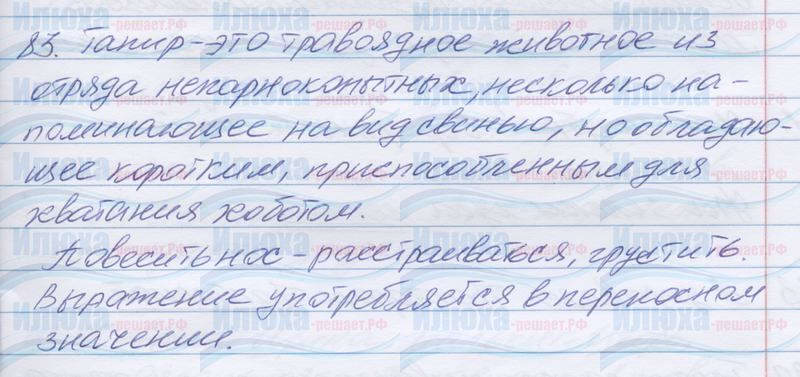 83. Тапир - это травоядное животное из
отряда непарнокопытных, несколько на-
поминающее на вид свинью, но обладаю-
щее коротким, приспособленным для
хватания хоботом.
Повесить нос - расстраиваться, грустить.
Выражение употребляется в переносном
значении.